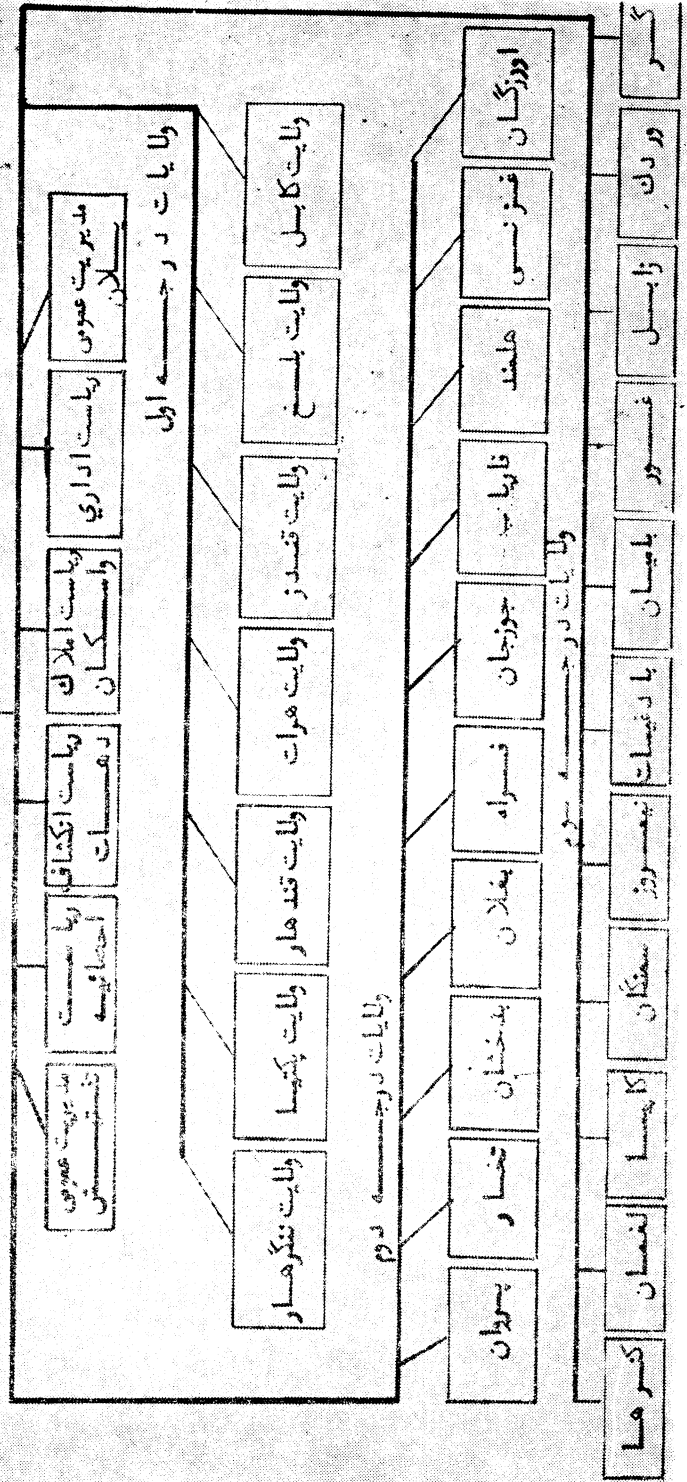 مديريت عمومی
پلان
رياست اداري
رياست املاك
واسكان
رياست انكشاف
دهات
رياست
احصائيه
مديريت عمومی
تفتيش
ولايات درجه اول
ولايت كابل
ولايت بلخ
ولايت قندز
ولايت هرات
ولايت قندهار
ولايت پكتيا
ولايت ننگرهار
ولايات درجه دوم
اورزگان
غزنی
هلمند
فارياب
جوزجان
فراه
بغلان
بدخشان
تخار
پروان
ولايات درجه سوم
گر
وردك
زابل
غور
باميان
بادغيسات
نيمروز
سمنگان
كاپيسا
لغمان
كنرها